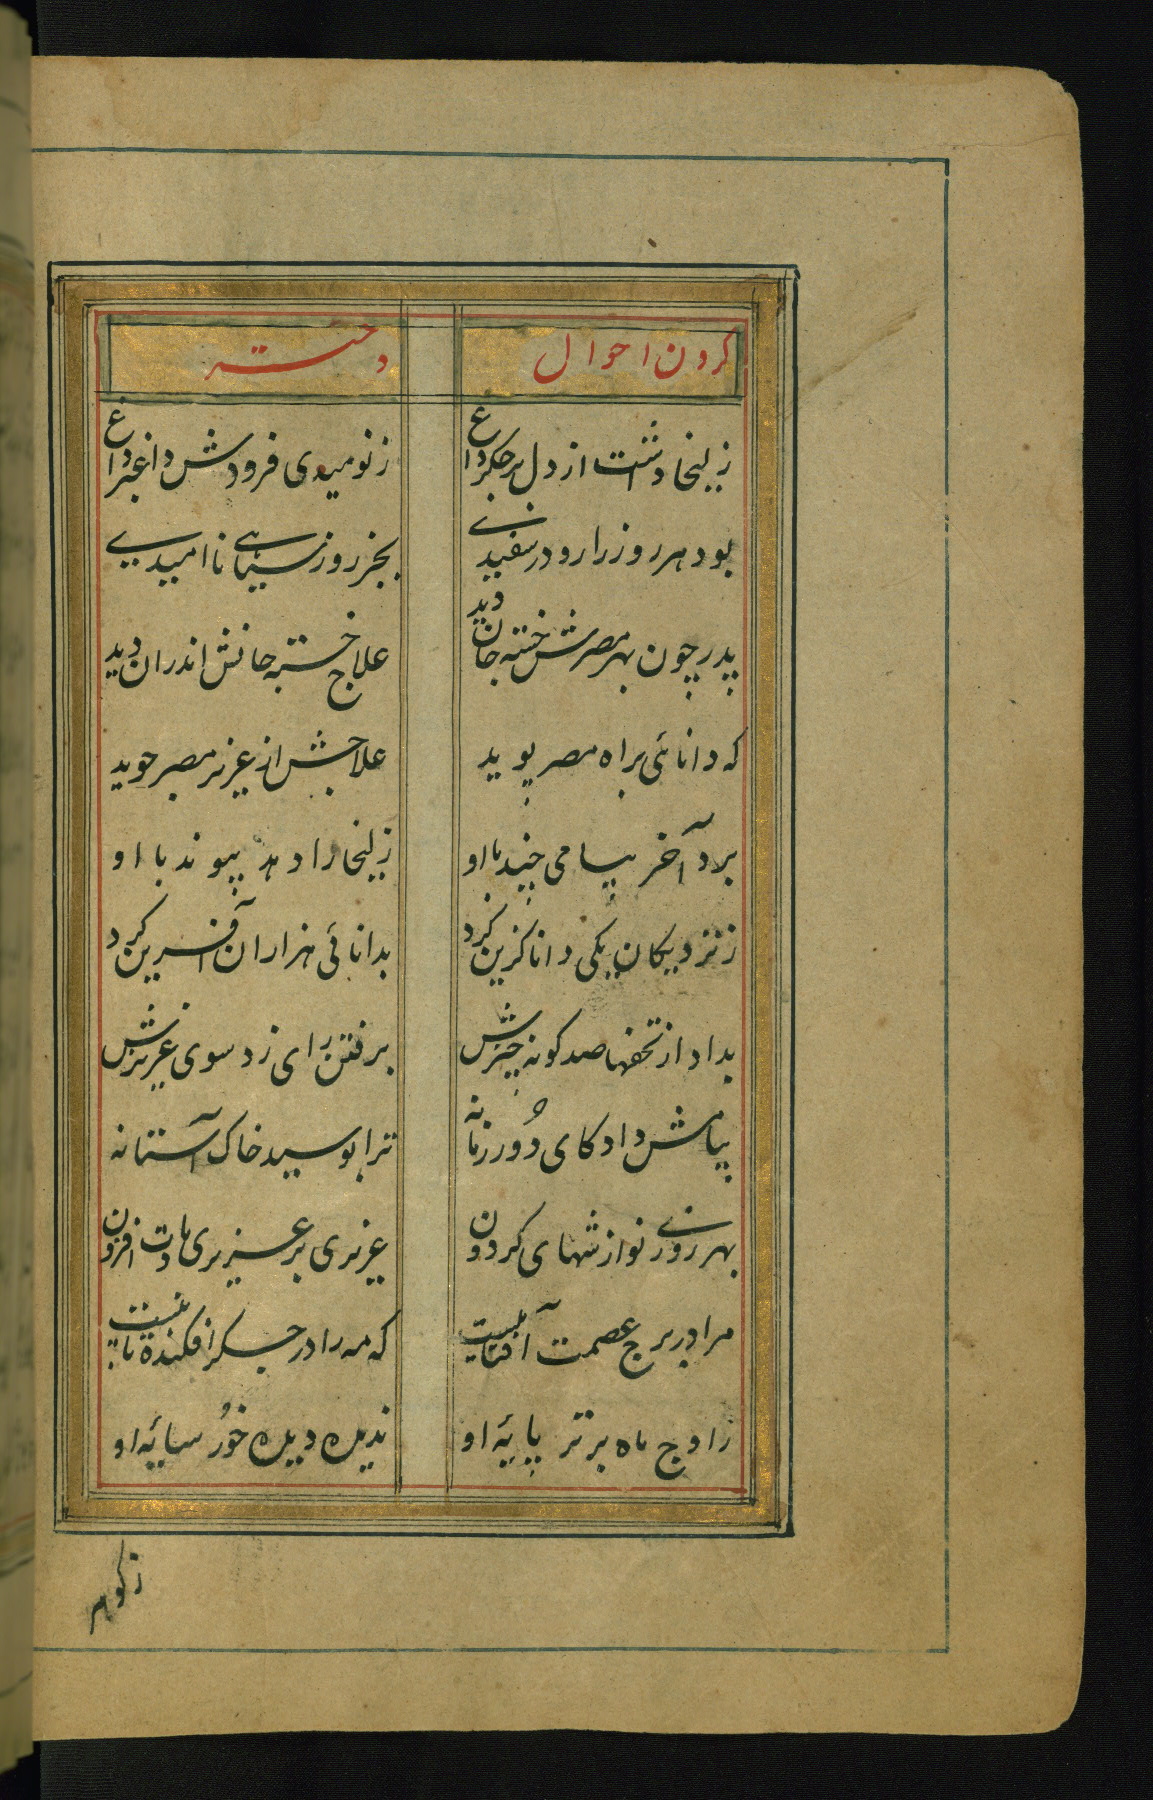 کردن احوال دختر
زلیخا داشت از دل بر جگر داغ ز نومیدی فزودش داغ بر داغ
بود هر روز را رو در سفیدی بجز روز سیاه ناامیدی
پدر چون بهر مصرش خسته جان دید علاج خسته جانش اندران دید
که دانائی براه مصر پوید علاجش از عزیز مصر جوید
برد آخر پیامی چند با او زلیخا را دهد پیوند با او
ز نزدیکان یکی دانا گزین کرد بدانائی هزاران آفرین کرد
بداد از تحفها صد گونه چیزش برفتن رای زد سوی عزیزش
پیامش داد کای دور زمانه ترا بوسید خاک آستانه
بهر روزی نوازشهای گردون عزیزی بر عزیزی بادت افزون
مرا در برج عصمت آفتابیست که مه را در جگر افکنده تابیست
ز اوج ماه برتر پایهٔ او ندیده دیده خور سایهٔ او
ز گوهر